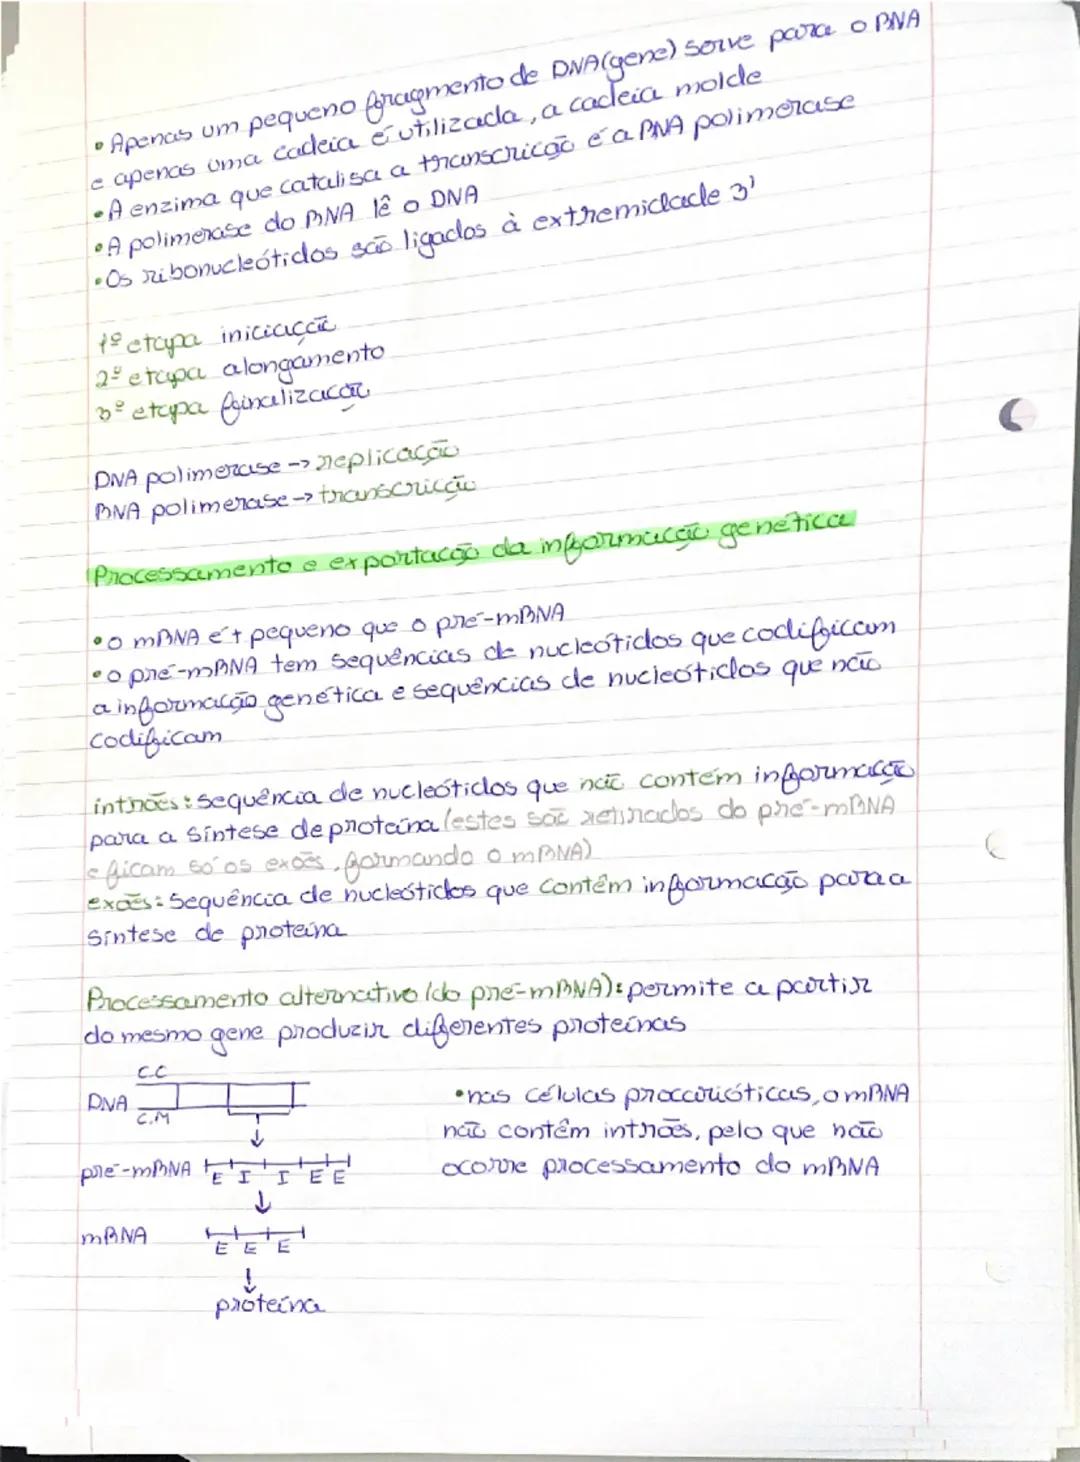 • Apenas um pequeno fragmento de DNA (gene) serve para o RNA
e apenas uma cadeia é utilizada, a cadeia molde
• A enzima que catalisa a transcrição é a RNA polimerase
• A polimerase do RNA lê o DNA
• Os ribonucleótidos são ligados à extremidade 3'
1ª etapa iniciação
2ª etapa alongamento
3ª etapa finalização
DNA polimerase -> replicação
RNA polimerase -> transcrição
Processamento e exportação da informação genética
• o mRNA é + pequeno que o pré-mRNA
• o pré-mRNA tem sequências de nucleótidos que codificam
a informação genética e sequências de nucleótidos que não
codificam
intrões: sequência de nucleótidos que não contém informação
para a síntese de proteína (estes são retirados do pré-mRNA
e ficam só os exões, formando o mRNA)
exões: Sequência de nucleótidos que contêm informação para a
síntese de proteína
Processamento alternativo (do pré-mRNA): permite a partir
do mesmo gene produzir diferentes proteínas
C.C
DNA
C.M
pré-mRNA E I I E E
mRNA
E E E
proteína
• nas células procarióticas, o mRNA
não contêm intrões, pelo que não
ocorre processamento do mRNA